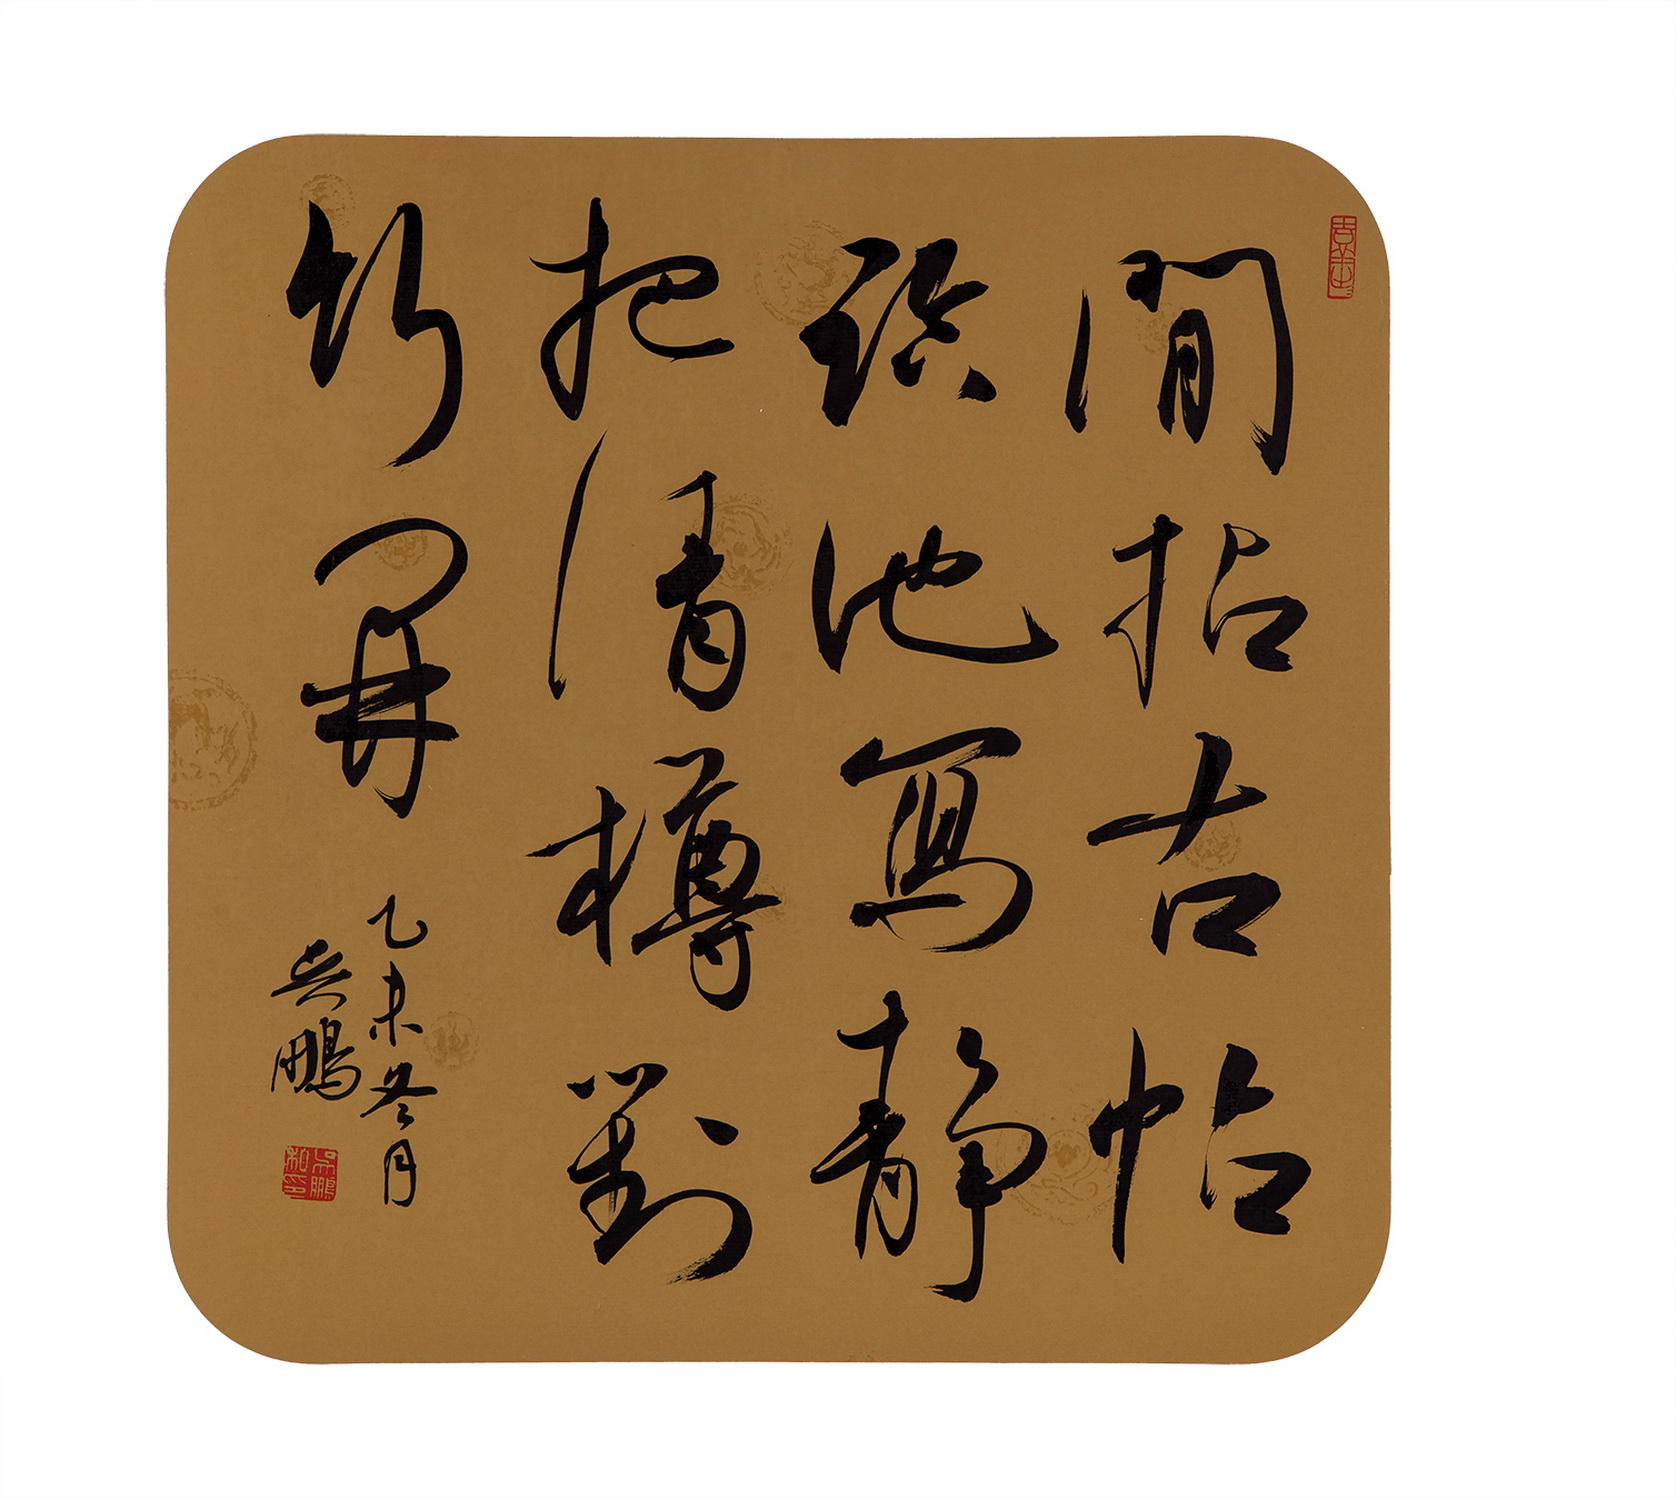 閒拈古帖
臨池寫靜
把清樽對
竹開
乙未冬月
吳鵬